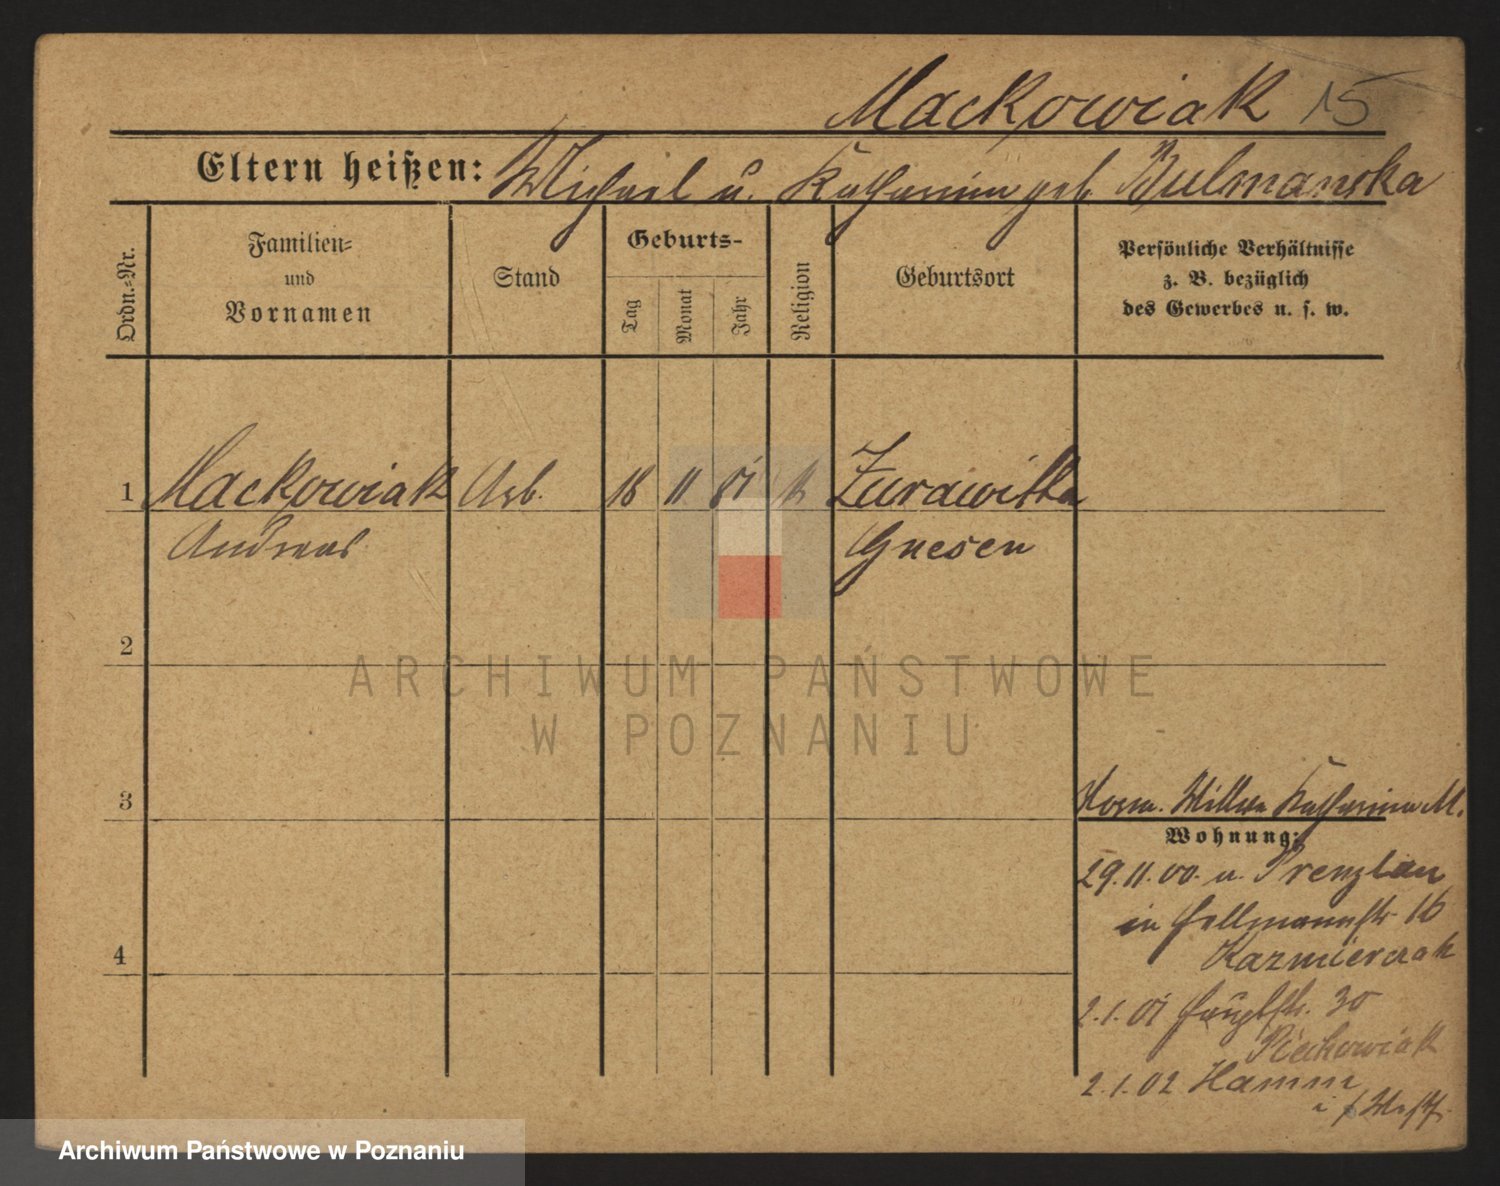 Mackowiak 15
Eltern heißen: Michael u. Katharina geb. Bulmanska
Ordn.-Nr.
Familien-
und
Vornamen
Stand
Geburts-
Tag
Monat
Jahr
Religion
Geburtsort
Persönliche Verhältnisse
z. B. bezüglich
des Gewerbes u. s. w.
1 Mackowiak Arb. 18 11 81 k Zurawitka
Andreas Gnesen
2
3
Vorm. Wittwe Katharina M.
Wohnung:
29.11.00. u. Prenzlau
in Hellmannstr 16
Kazmierczak
4
2.1.01 Hauptstr. 30
Pieckowiak
2.1.02 Hamm
i/Westf.
ARCHIWUM PAŃSTWOWE
W POZNANIU
Archiwum Państwowe w Poznaniu